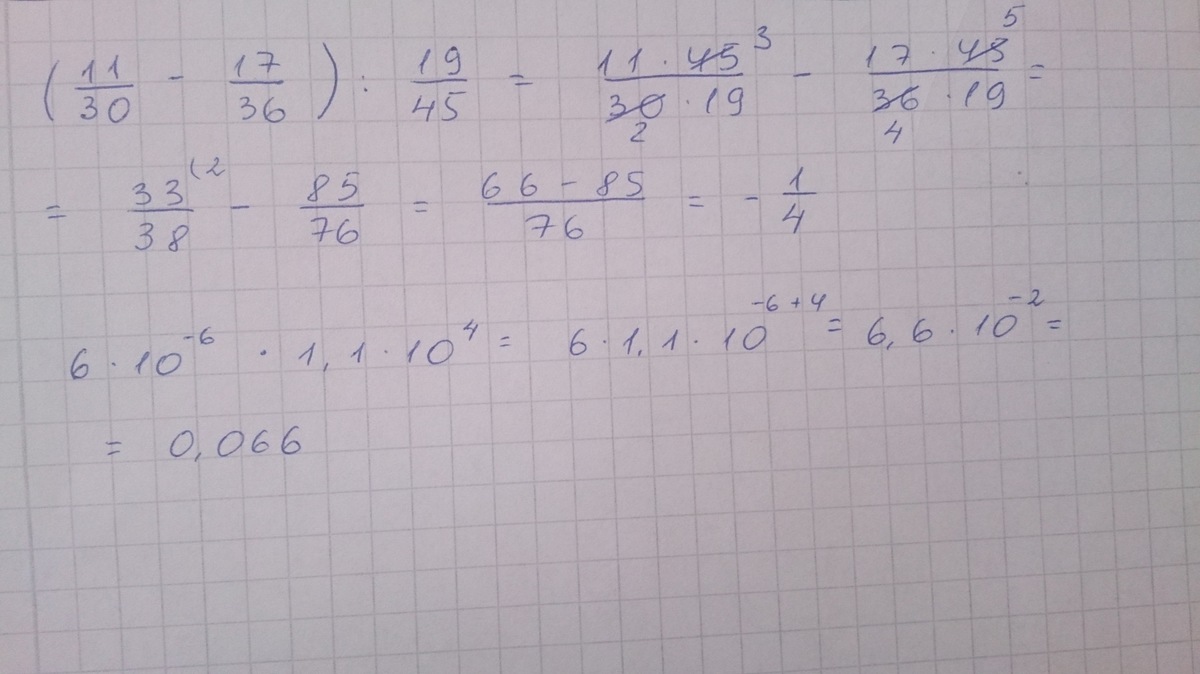 (11/30 - 17/36) : 19/45 = 11 · 45 3 / 30 2 · 19 - 17 · 45 5 / 36 4 · 19 =
= 33/38 (2 - 85/76 = 66 - 85 / 76 = - 1/4
6 · 10⁻⁶ · 1,1 · 10⁴ = 6 · 1,1 · 10⁻⁶⁺⁴ = 6,6 · 10⁻² =
= 0,066